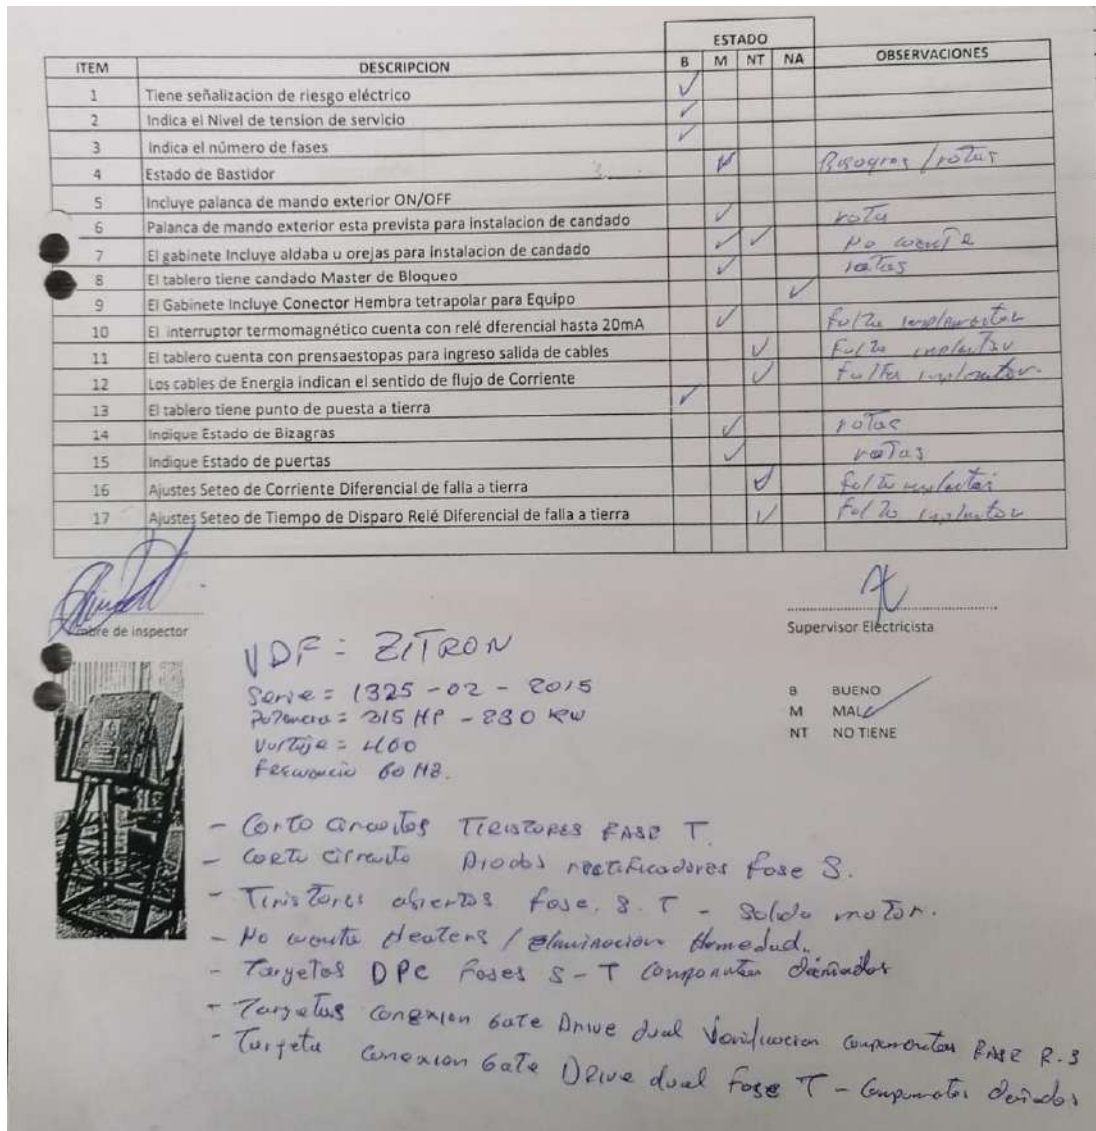 ESTADO
ITEM DESCRIPCION B M NT NA OBSERVACIONES
1 Tiene señalizacion de riesgo eléctrico ✓
2 Indica el Nivel de tension de servicio ✓
3 Indica el número de fases ✓
4 Estado de Bastidor ✓ Bisagras / rotas
5 Incluye palanca de mando exterior ON/OFF
6 Palanca de mando exterior esta prevista para instalacion de candado ✓ rota
7 El gabinete Incluye aldaba u orejas para instalacion de candado ✓ ✓ No cuenta
8 El tablero tiene candado Master de Bloqueo ✓ rotas
9 El Gabinete Incluye Conector Hembra tetrapolar para Equipo ✓
10 El interruptor termomagnético cuenta con relé dferencial hasta 20mA ✓ Falta
11 El tablero cuenta con prensaestopas para ingreso salida de cables ✓ Falta
12 Los cables de Energia indican el sentido de flujo de Corriente ✓ Falta
13 El tablero tiene punto de puesta a tierra ✓
14 Indique Estado de Bizagras ✓ rotas
15 Indique Estado de puertas ✓ rotas
16 Ajustes Seteo de Corriente Diferencial de falla a tierra ✓ Falta
17 Ajustes Seteo de Tiempo de Disparo Relé Diferencial de falla a tierra ✓ Falta
mbre de inspector
Supervisor Electricista
VDF = ZITRON
Serie = 1325 - 02 - 2015
Potencia = 315 HP - 230 KW
Voltaje = 460
Frecuencia 60 HZ.
B BUENO
M MALO
NT NO TIENE
- Corto circuitos TIRISTORES FASE T.
- Corto circuito Diodos rectificadores fase S.
- Tiristores abiertos fase. S. T - Salida motor.
- No cuenta Heaters / Eliminacion Homedad.
- Targetas DPC Fases S - T Componentes dañados
- Targetas Conexion Gate Drive dual Verificacion componentes FASE R. S
- Targeta Conexion Gate Drive dual Fase T - Componentes dañados